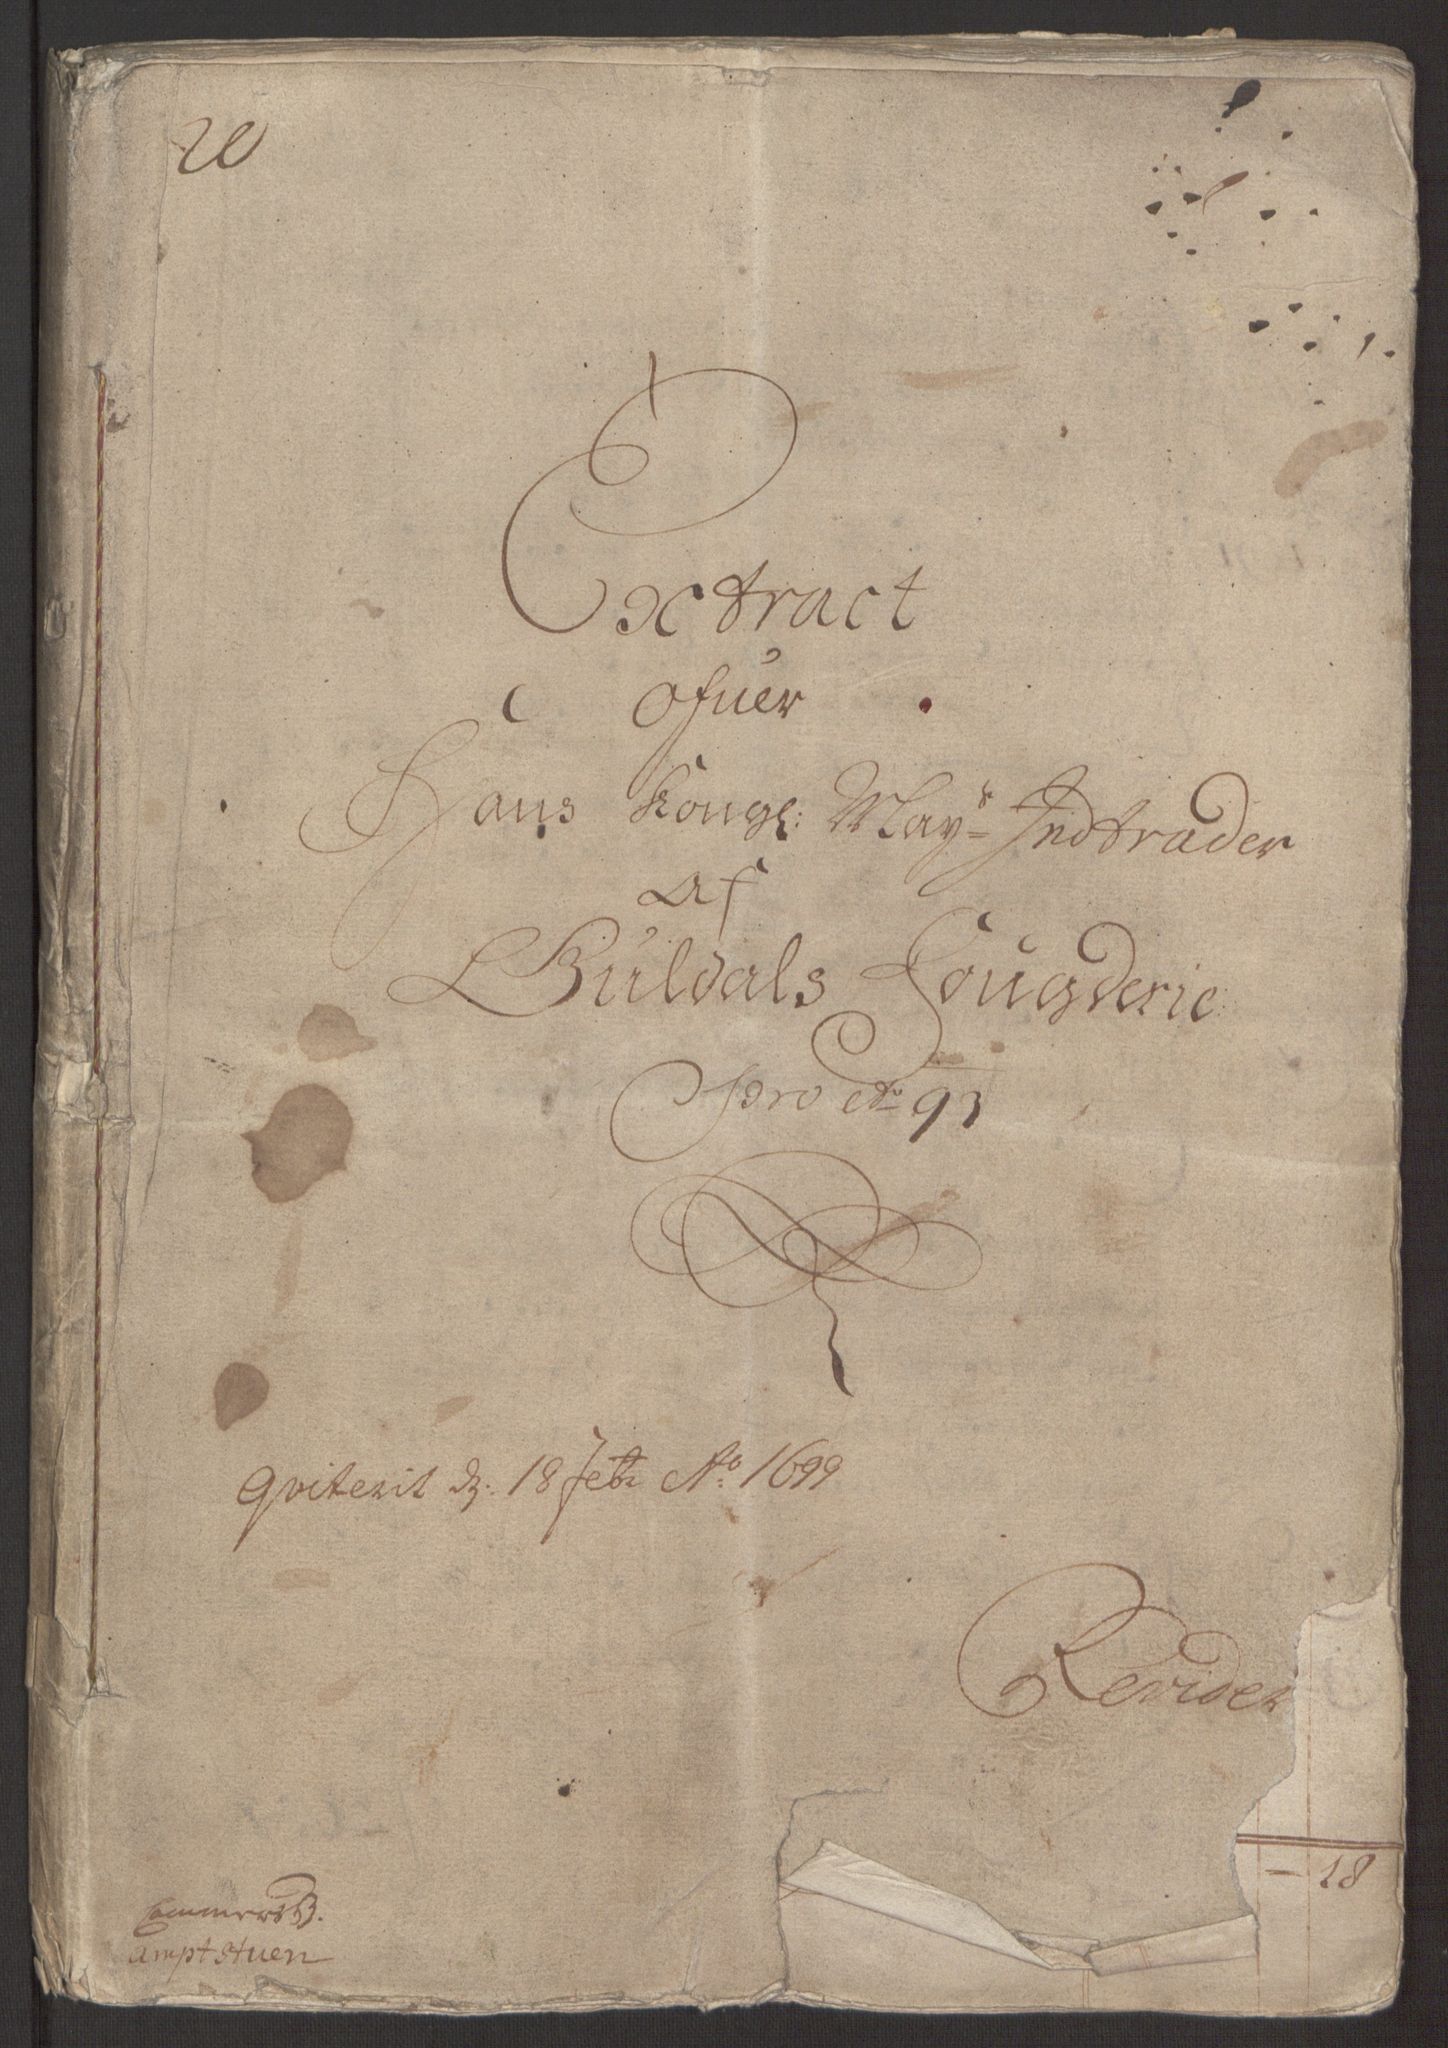 20
Extract
ofuer
Hans Kongl: Mayrs Indtrader
Af
Guldals Fougderie
Pro Ao 93
Qviterit d. 18 Febr Ao 1699
Revider
- 18
amptstuen